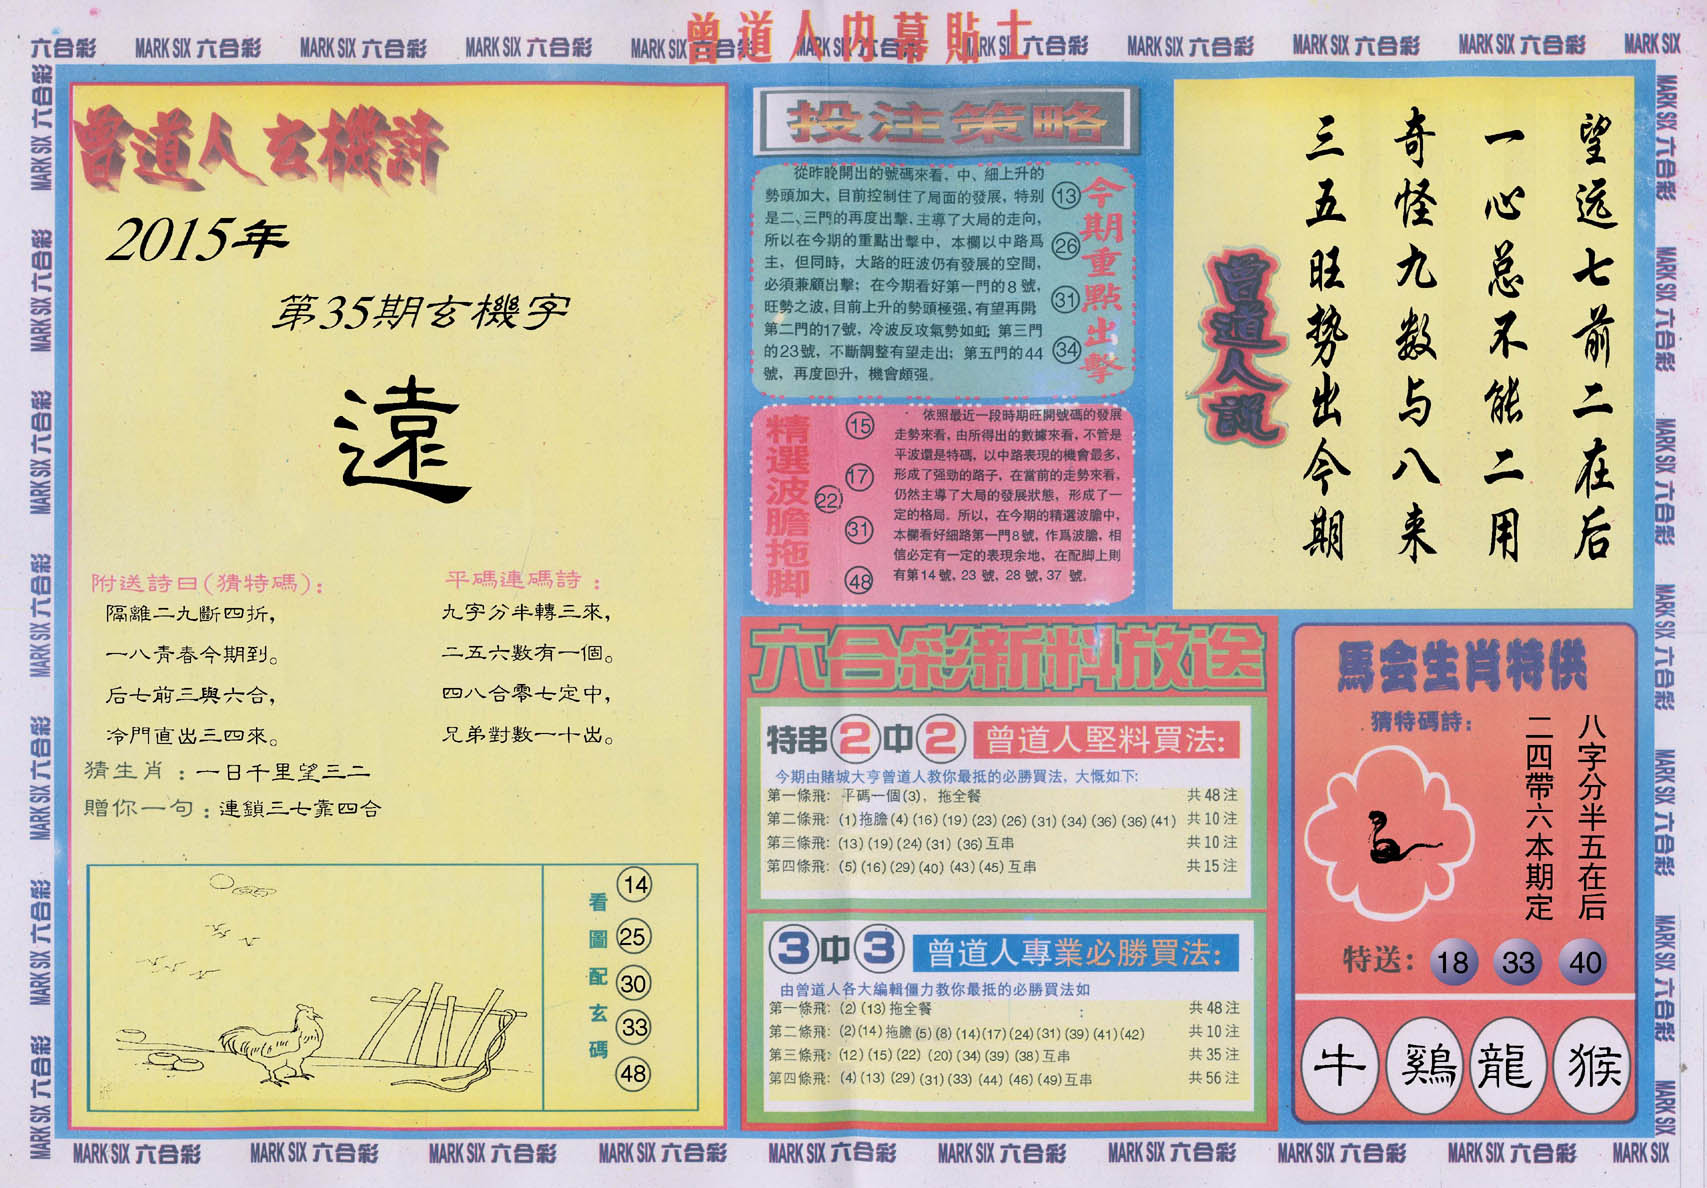 曾道人内幕貼士
六合彩 MARK SIX 六合彩 MARK SIX 六合彩 MARK SIX 六合彩 MARK SIX 六合彩 MARK SIX 六合彩 MARK SIX 六合彩 MARK SIX 六合彩 MARK SIX 六合彩 MARK SIX 六合彩 MARK SIX
曾道人玄機詩
2015年
第35期玄機字
遠
附送詩曰(猜特碼):
隔離二九斷四折,
一八青春今期到。
后七前三與六合,
冷門直出三四來。
平碼連碼詩:
九字分半轉三來,
二五六數有一個。
四八合零七定中,
兄弟對數一十出。
猜生肖:一日千里望三二
贈你一句:連鎖三七靠四合
看圖配玄碼
14
25
30
33
48
投注策略
從昨晚開出的號碼來看,中、細上升的
勢頭加大,目前控制住了局面的發展,特别
是二、三門的再度出擊,主導了大局的走向,
所以在今期的重點出擊中,本欄以中路爲
主,但同時,大路的旺波仍有發展的空間,
必須兼顧出擊;在今期看好第一門的8號,
旺勢之波,目前上升的勢頭極强,有望再開;
第二門的17號,冷波反攻氣勢如虹;第三門
的23號,不斷調整有望走出;第五門的44
號,再度回升,機會頗强。
今期重點出擊
13
26
31
34
精選波膽拖脚
15
17
22
31
48
依照最近一段時期旺開號碼的發展
走勢來看,由所得出的數據來看,不管是
平波還是特碼,以中路表現的機會最多,
形成了强勁的路子,在當前的走勢來看,
仍然主導了大局的發展狀態,形成了一
定的格局。所以,在今期的精選波膽中,
本欄看好細路第一門8號,作爲波膽,相
信必定有一定的表現余地,在配脚上則
有第14號,23號,28號,37號。
六合彩新料放送
特串2中2 曾道人堅料買法:
今期由賭城大亨曾道人教你最抵的必勝買法,大慨如下:
第一條飛: 平碼一個(3),拖全餐 共48注
第二條飛: (1)拖膽(4)(16)(19)(23)(26)(31)(34)(36)(36)(41) 共10注
第三條飛: (13)(19)(24)(31)(36)互串 共10注
第四條飛: (5)(16)(29)(40)(43)(45)互串 共15注
3中3 曾道人專業必勝買法:
由曾道人各大編輯僵力教你最抵的必勝買法如
第一條飛: (2)(13)拖全餐 共48注
第二條飛: (2)(14)拖膽(5)(8)(14)(17)(24)(31)(39)(41)(42) 共10注
第三條飛: (12)(15)(22)(20)(34)(39)(38)互串 共35注
第四條飛: (4)(13)(29)(31)(33)(44)(46)(49)互串 共56注
望远七前二在后
一心总不能二用
奇怪九数与八来
三五旺势出今期
曾道人説
馬会生肖特供
猜特碼詩:
八字分半五在后
二四帶六本期定
特送: 18 33 40
牛 鷄 龍 猴
MARK SIX 六合彩 MARK SIX 六合彩 MARK SIX 六合彩 MARK SIX 六合彩 MARK SIX 六合彩 MARK SIX 六合彩 MARK SIX 六合彩 MARK SIX 六合彩 MARK SIX 六合彩 MARK SIX